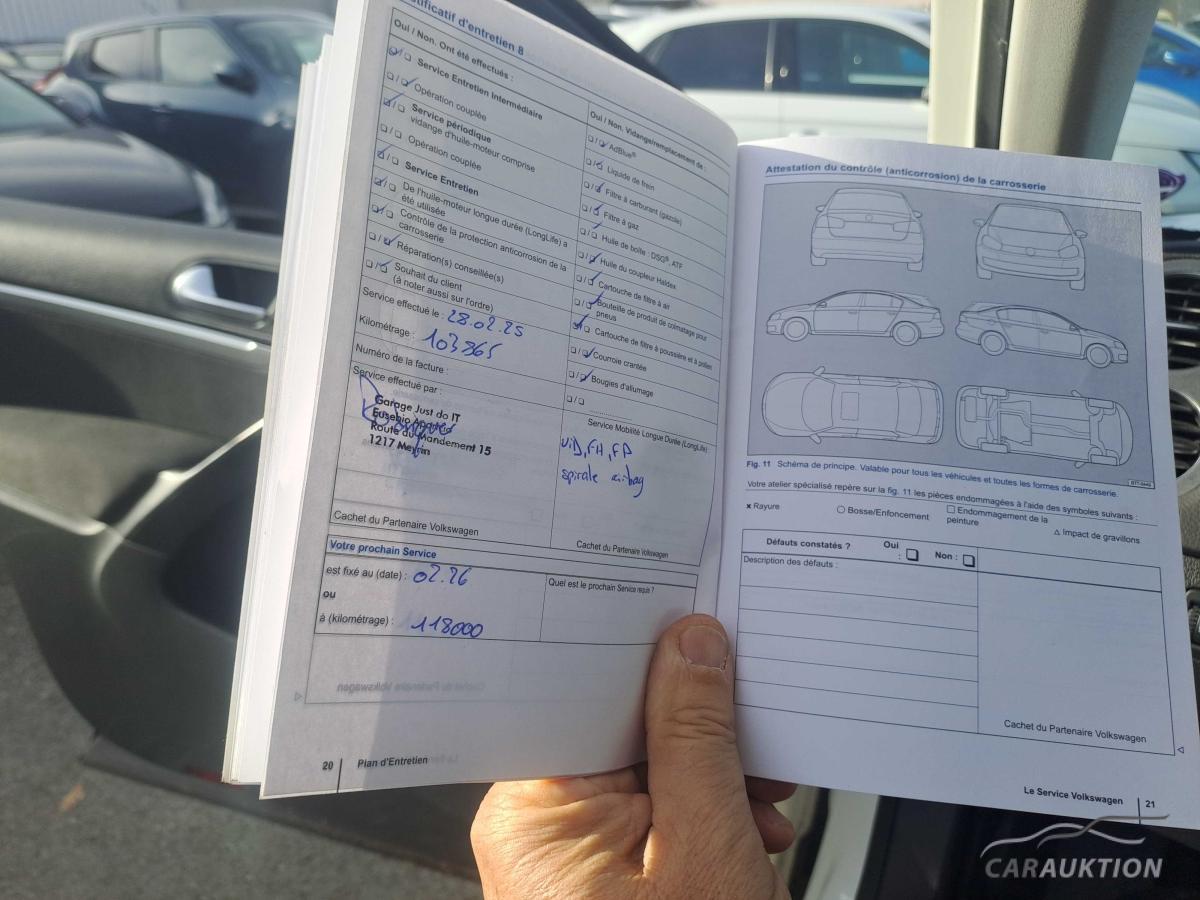 tificatif d'entretien 8
Oui / Non. Ont été effectués :
Service Entretien Intermédiaire
Opération couplée
Service périodique
vidange d'huile-moteur comprise
Opération couplée
Service Entretien
De l'huile-moteur longue durée (LongLife) a
été utilisée
Contrôle de la protection anticorrosion de la
carrosserie
Réparation(s) conseillée(s)
Souhait du client
(à noter aussi sur l'ordre)
Service effectué le : 28.02.25
Kilométrage : 103365
Numéro de la facture :
Service effectué par :
Garage Just do IT
Eusebio
Route du Mandement 15
1217 Meyrin
Cachet du Partenaire Volkswagen
Oui / Non. Vidange/remplacement de :
AdBlue®
Liquide de frein
Filtre à carburant (gazole)
Filtre à gaz
Huile de boîte : DSG®, ATF
Huile du coupleur Haldex
Cartouche de filtre à air
Bouteille de produit de colmatage pour
pneus
Cartouche de filtre à poussière et à pollen
Courroie crantée
Bougies d'allumage
Service Mobilité Longue Durée (LongLife)
ViD, FH, FP
spirale airbag
Cachet du Partenaire Volkswagen
Votre prochain Service
est fixé au (date) : 02.26
ou
à (kilométrage) : 118000
Quel est le prochain Service requis ?
20 Plan d'Entretien
Attestation du contrôle (anticorrosion) de la carrosserie
Fig. 11 Schéma de principe. Valable pour tous les véhicules et toutes les formes de carrosserie.
Votre atelier spécialisé repère sur la fig. 11 les pièces endommagées à l'aide des symboles suivants :
x Rayure
○ Bosse/Enfoncement
□ Endommagement de la
peinture
△ Impact de gravillons
Défauts constatés ? Oui : Non :
Description des défauts :
Cachet du Partenaire Volkswagen
Le Service Volkswagen 21
CARAUKTION